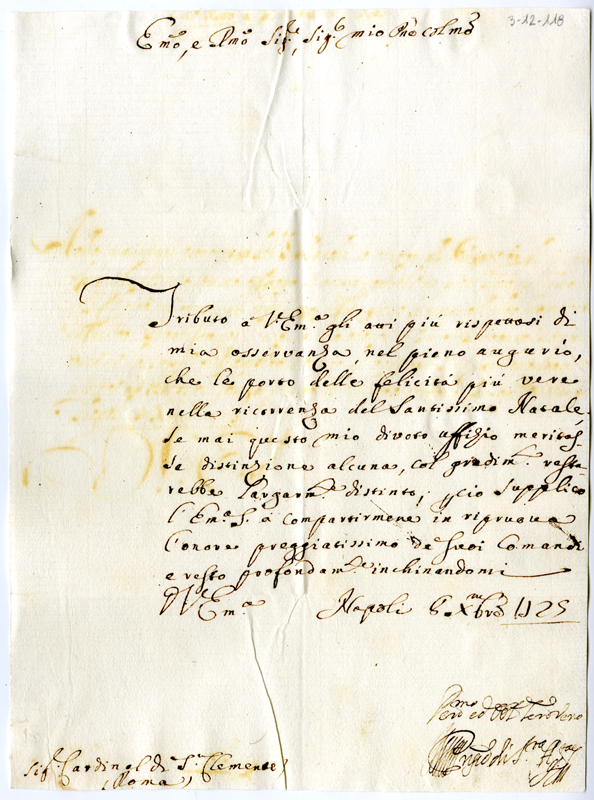 3-12-118
Emo, e Rmo Sigr, Sigr mio Pne colmo
Tributo à V. Ema gli atti più rispettosi di
mia osservanza, nel pieno augurio,
che le porto delle felicità più vere
nella ricorrenza del Santissimo Natale,
Se mai questo mio divoto uffizio meritas
se distinzione alcuna, col gradimto resta
rebbe largamte distinto; pciò supplico
l'Ema S. à compartirmene in ripruova
l'onore preggiatissimo de suoi Comandi
e resto profondamte inchinandomi
D V Ema Napoli 6 Xmbre 1725
Sigr Cardinal di S. Clemente
(Roma)